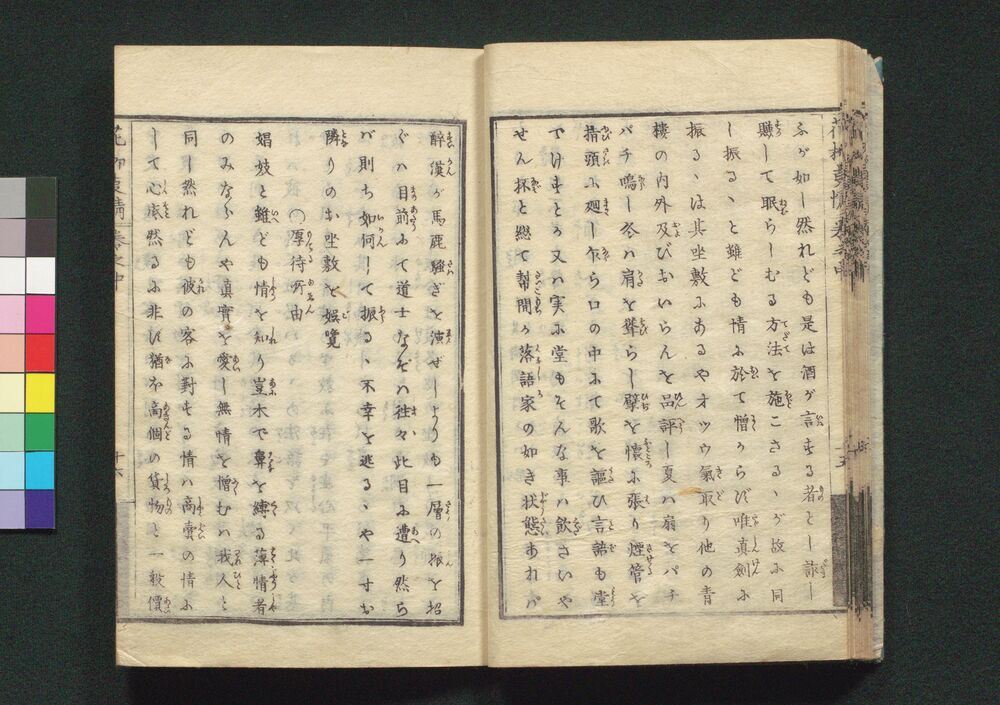 ふが如し然れども是は酒が言する者と許し
懸して眠らしむる方法を施こさるゝが故ふ同
し振るゝと雖ども情ふ於て憎からび唯真劍ふ
振るゝは其坐敷ふあるやオツウ氣取り他の青
樓の内外及びおいらんを品評し夏ハ扇をパチ
パチ鳴し冬ハ肩を聳らし臂を懐ふ張り煙管を
指頭ふ廻し乍ら口の中ふて歌を謳ひ言語も堂
でけすとか又ハ実ふ堂もそんな事ハ飲さいや
せん杯と總て幇間か落語家の如き状態あれバ
醉漢が馬鹿騒ぎを演ぜしよりも一層の振を招
ぐハ目前ふて道士なぞハ往々此目ふ遭り然ら
バ則ち如何して振るゝ不幸を逃るゝや一寸お
隣りのお坐敷を娯覽
○厚待所由
娼妓と雖ども情を知り豈木で鼻を縛る薄情者
のみならんや真實を愛し無情を憎むハ我人と
同し然れども彼の客ふ對する情ハ商賣の情ふ
して心底然るふ非び猶を高個の貨物と一般價
十五
十六